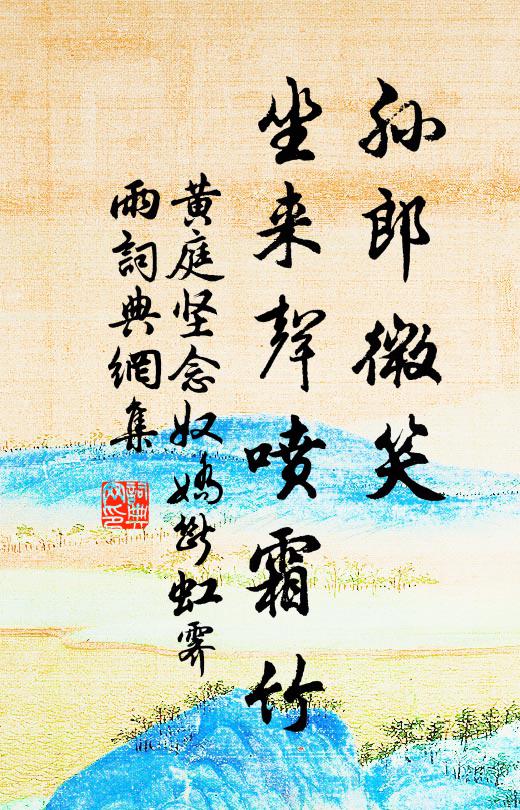 孙郎微笑
坐来聲喷霜竹
黄庭坚念奴嬌斷虹霁
雨詞典網集
詞典